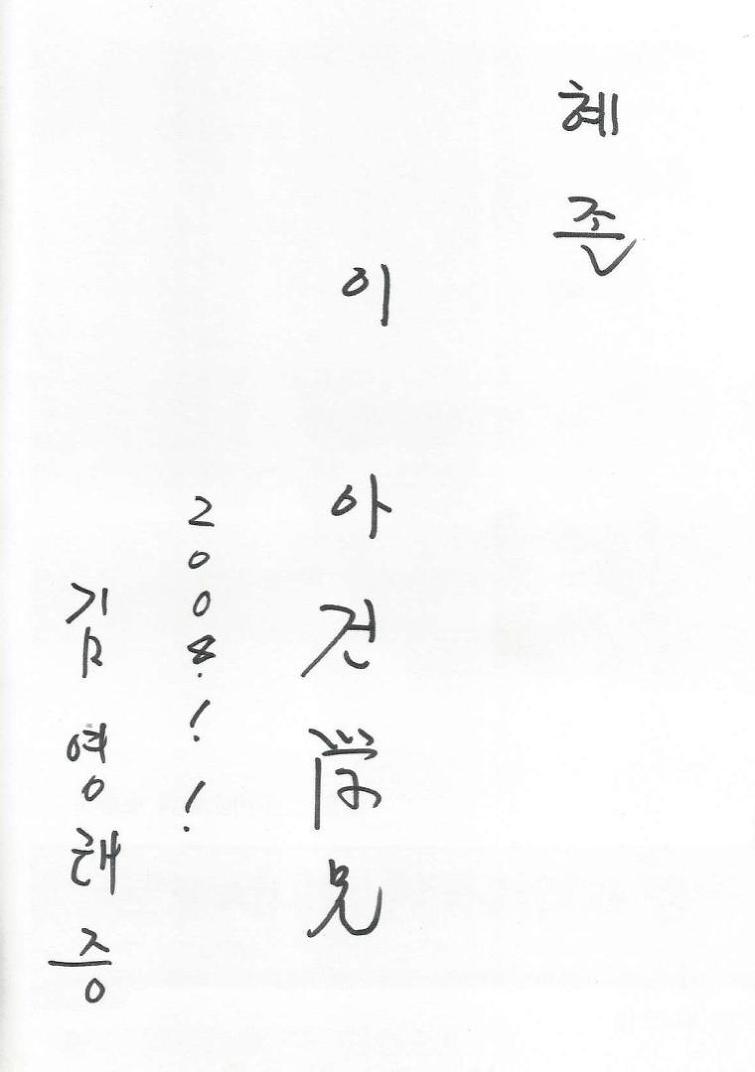 혜존
이 아건 学兄
2008. 1. 1.
김영래 증